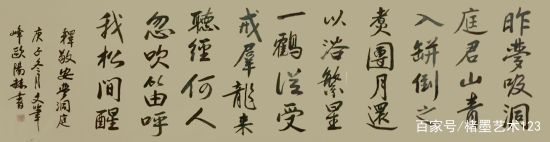 昨夢吸洞
庭君山青
入缾倒之
煑團月還
以浴繁星
一鶴從受
戒羣龍来
聽經何人
忽吹笛呼
我松間醒
釋敬安夢洞庭
庚子冬月文筆
峰歐陽書
百家号/楮墨艺术123